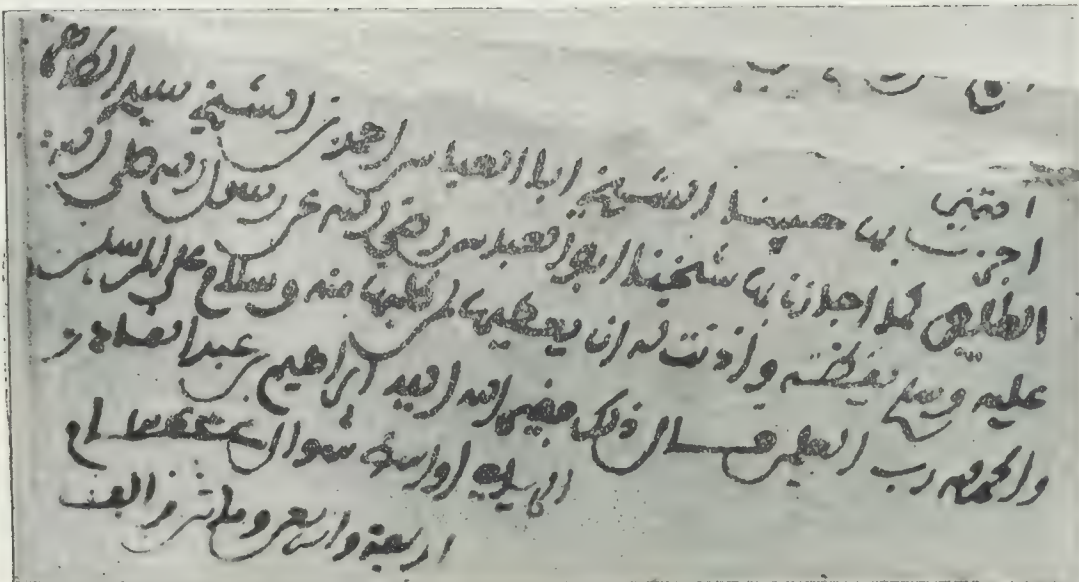 اجزت بها حبيبنا الشيخ ابا العباس احمد بن الشيخ سيدي
كما اجازني بها شيخنا ابو العباس رضي الله عن رسول الله صلى الله
عليه وسلم يقظة واذنت له ان يعطيها لمن طلبها منه وسلام على المرسلين
والحمد لله رب العلمين قال ذلك فقير الله ابراهيم بن عبد القادر
الرياحي اواسط شوال عام
اربعة واربعين ومائتين والف